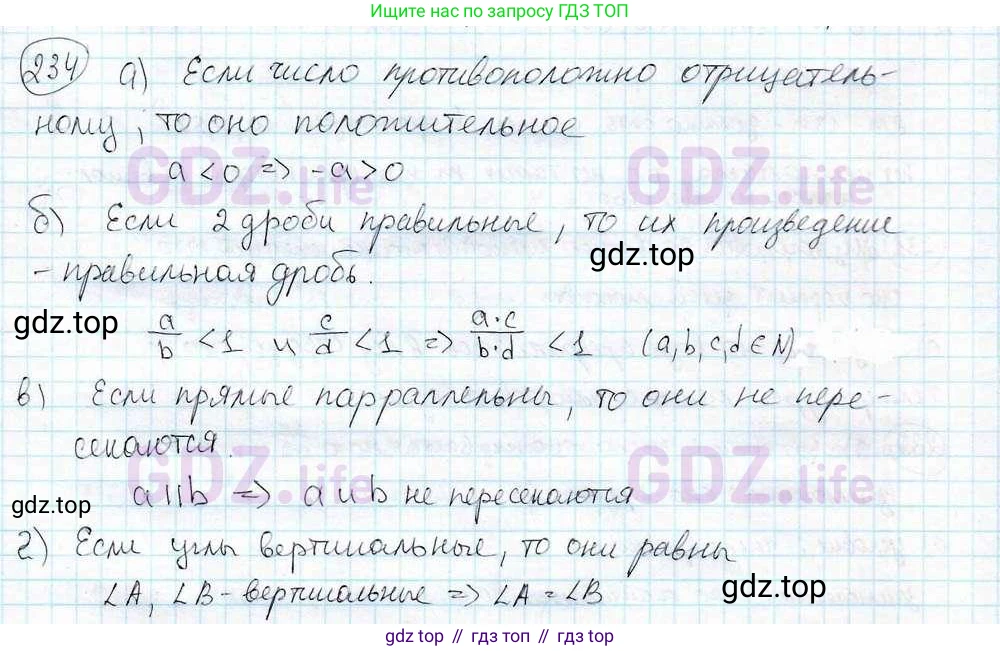 Ищите ответы по запросу ГДЗ ТОП
234 а) Если число противоположно отрицатель-
ному, то оно положительное
a < 0 => -a > 0
GDZ.life GDZ.life
б) Если 2 дроби правильные, то их произведение
gdz.top
- правильная дробь.
gdz.top
a/b < 1 и c/d < 1 => a·c/b·d < 1 (a, b, c, d ∈ N)
в) Если прямые парраллельны, то они не пере-
секаются.
GDZ.life GDZ.life
a || b => a и b не пересекаются
gdz.top
г) Если углы вертикальные, то они равны
gdz.top
∠A, ∠B - вертикальные => ∠A = ∠B
gdz.top // гдз топ // gdz.top